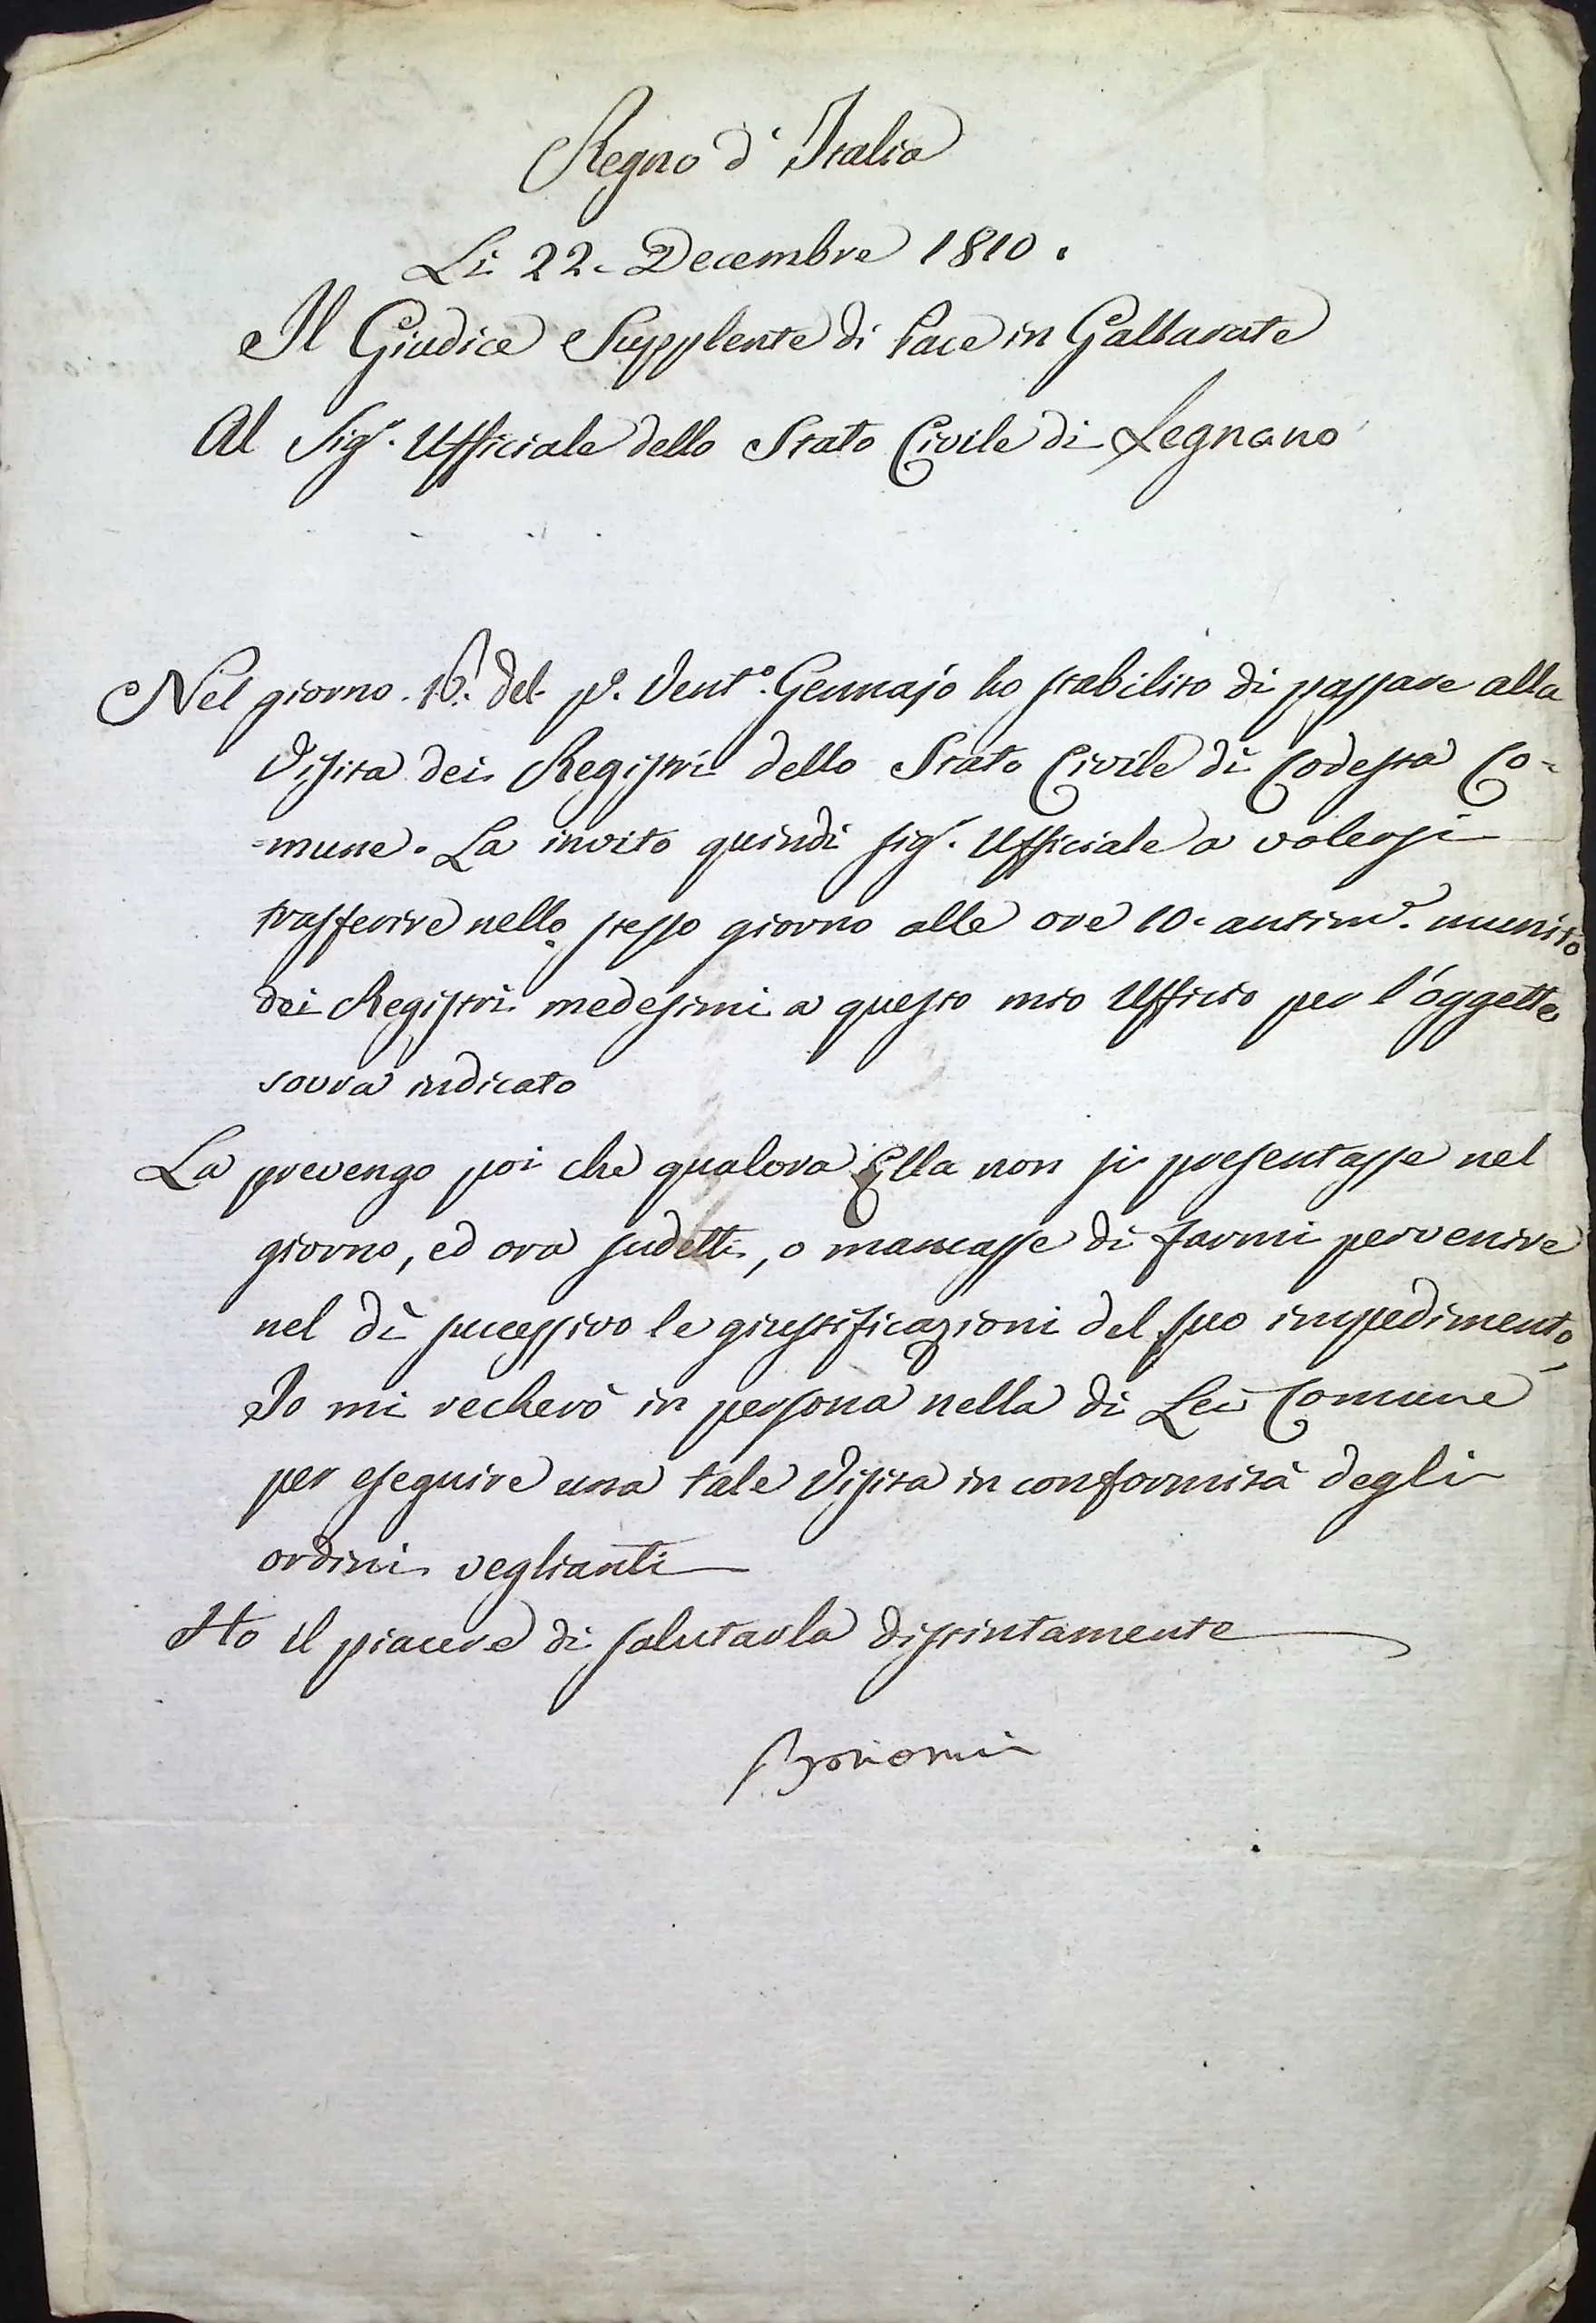 Regno d'Italia
Li 22. Decembre 1810.
Il Giudice Supplente di Pace in Gallarate
Al Sig.r Ufficiale dello Stato Civile di Legnano
Nel giorno 16. del p.o vent.o Gennajo ho stabilito di passare alla
visita dei Registri dello Stato Civile di codesta Co-
-mune. La invito quindi sig.r Ufficiale a volersi
trasferire nello stesso giorno alle ore 10. antim.e munito
dei Registri medesimi a questo mio Ufficio per l'oggetto
sovra indicato
La prevengo poi che qualora Ella non si presentasse nel
giorno, ed ora sudetti, o mancasse di farmi pervenire
nel dì successivo le giustificazioni del suo impedimento,
Io mi recherò in persona nella di Lei Comune
per eseguire una tale visita in conformità degli
ordini veglianti
Ho il piacere di salutarla distintamente
Bonomi